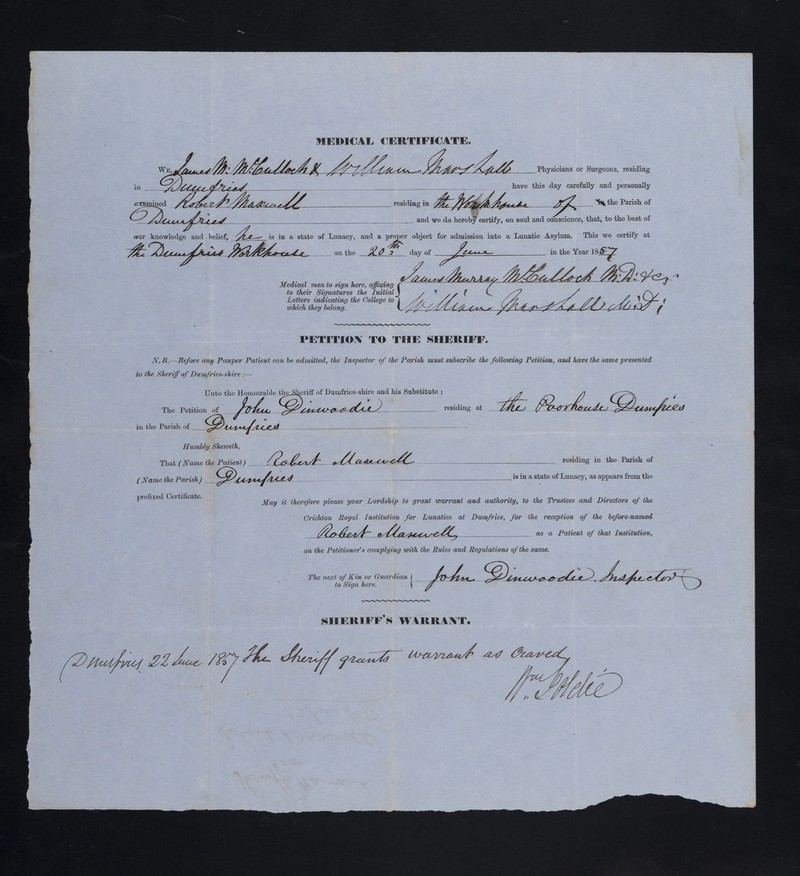 MEDICAL CERTIFICATE.
We, James M: McCulloch & William Marshall Physicians or Surgeons, residing
in Dumfries have this day carefully and personally
examined Robert Maxwell residing in the Workhouse of the Parish of
Dumfries and we do hereby certify, on soul and conscience, that, to the best of
our knowledge and belief, he is in a state of Lunacy, and a proper object for admission into a Lunatic Asylum. This we certify at
the Dumfries Workhouse on the 20th day of June in the Year 1857
Medical men to sign here, affixing
to their Signatures the Initial
Letters indicating the College to
which they belong.
James Murray McCulloch M.D: &c.
William Marshall M:D:
PETITION TO THE SHERIFF.
N.B.—Before any Pauper Patient can be admitted, the Inspector of the Parish must subscribe the following Petition, and have the same presented
to the Sheriff of Dumfries-shire:—
Unto the Honourable the Sheriff of Dumfries-shire and his Substitute:
The Petition of John Dinwoodie residing at the Poorhouse Dumfries
in the Parish of Dumfries
Humbly Sheweth,
That (Name the Patient) Robert Maxwell residing in the Parish of
(Name the Parish) Dumfries is in a state of Lunacy, as appears from the
prefixed Certificate.
May it therefore please your Lordship to grant warrant and authority, to the Trustees and Directors of the
Crichton Royal Institution for Lunatics at Dumfries, for the reception of the before-named
Robert Maxwell as a Patient of that Institution,
on the Petitioner's complying with the Rules and Regulations of the same.
The next of Kin or Guardian
to Sign here.
John Dinwoodie. Inspector
SHERIFF'S WARRANT.
Dumfries 22 June 1857 The Sheriff grants warrant as craved
Wm. Goldie